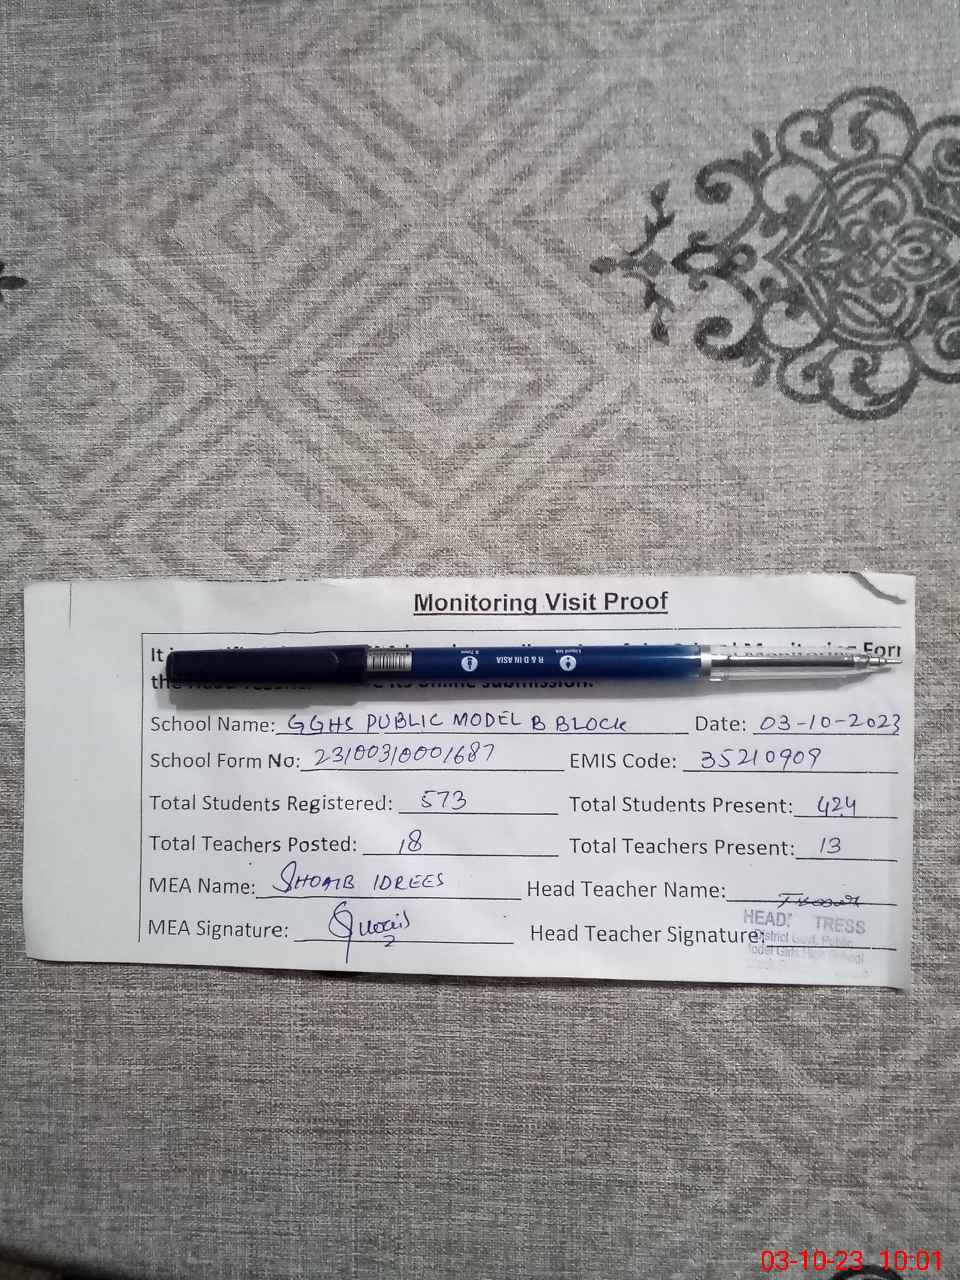 Monitoring Visit Proof
It
Monitoring For
the Head its online submission.
Liquid Ink R & D IN ASIA 0.70mm
School Name: GGHS PUBLIC MODEL B BLOCK Date: 03-10-2023
School Form No: 23100310001687 EMIS Code: 35210909
Total Students Registered: 573 Total Students Present: 424
Total Teachers Posted: 18 Total Teachers Present: 13
MEA Name: SHOAIB IDREES Head Teacher Name:
MEA Signature: Head Teacher Signature:
HEAD TRESS
District Govt. Public
Model Girls High School
03-10-23 10:01